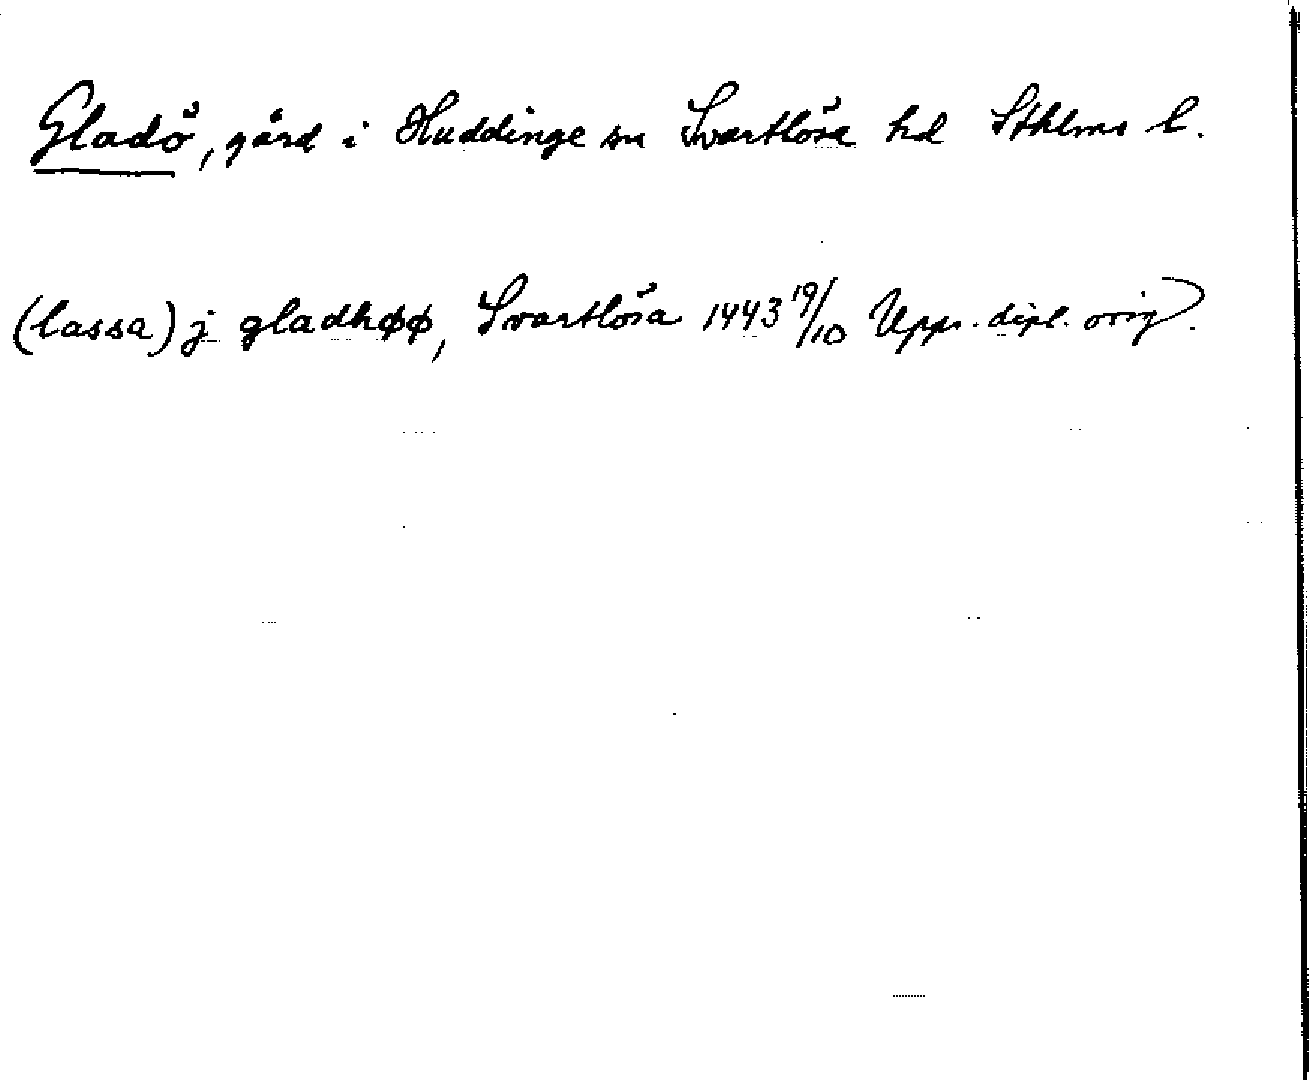 Gladö, gård i Huddinge sn Svartlösa hd Sthlms l.
(lassa) j gladhøø, Svartlösa 1443 19/10 Upps. dipl. orig.